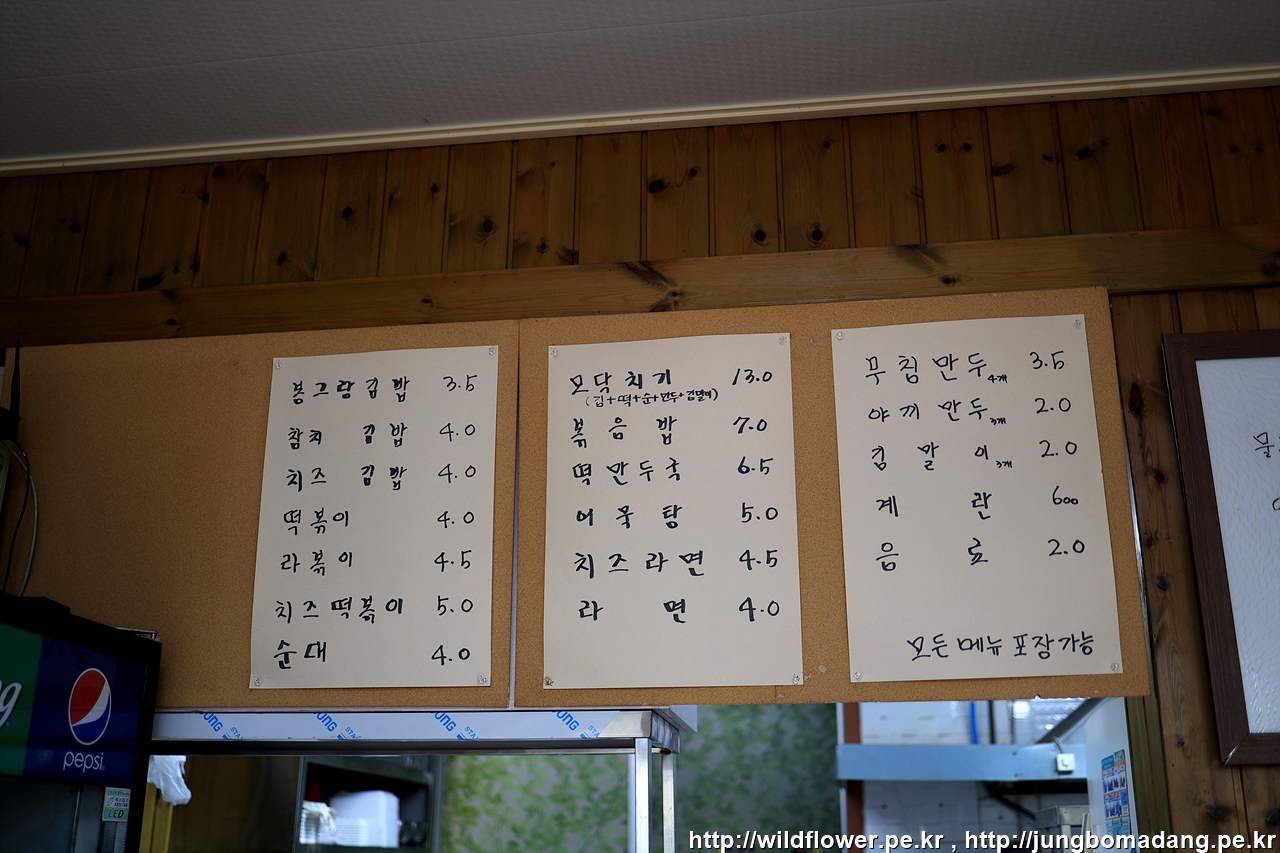 봉그랑김밥 3.5
참치 김밥 4.0
치즈 김밥 4.0
떡볶이 4.0
라볶이 4.5
치즈떡볶이 5.0
순대 4.0
모닥치기 13.0
(김+떡+순+만두+김말이)
볶음밥 7.0
떡만두국 6.5
어묵탕 5.0
치즈라면 4.5
라면 4.0
무침만두 4개 3.5
야끼만두 3개 2.0
김말이 3개 2.0
계란 600
음료 2.0
모든 메뉴 포장 가능
pepsi
LED
http://wildflower.pe.kr , http://jungbomadang.pe.kr